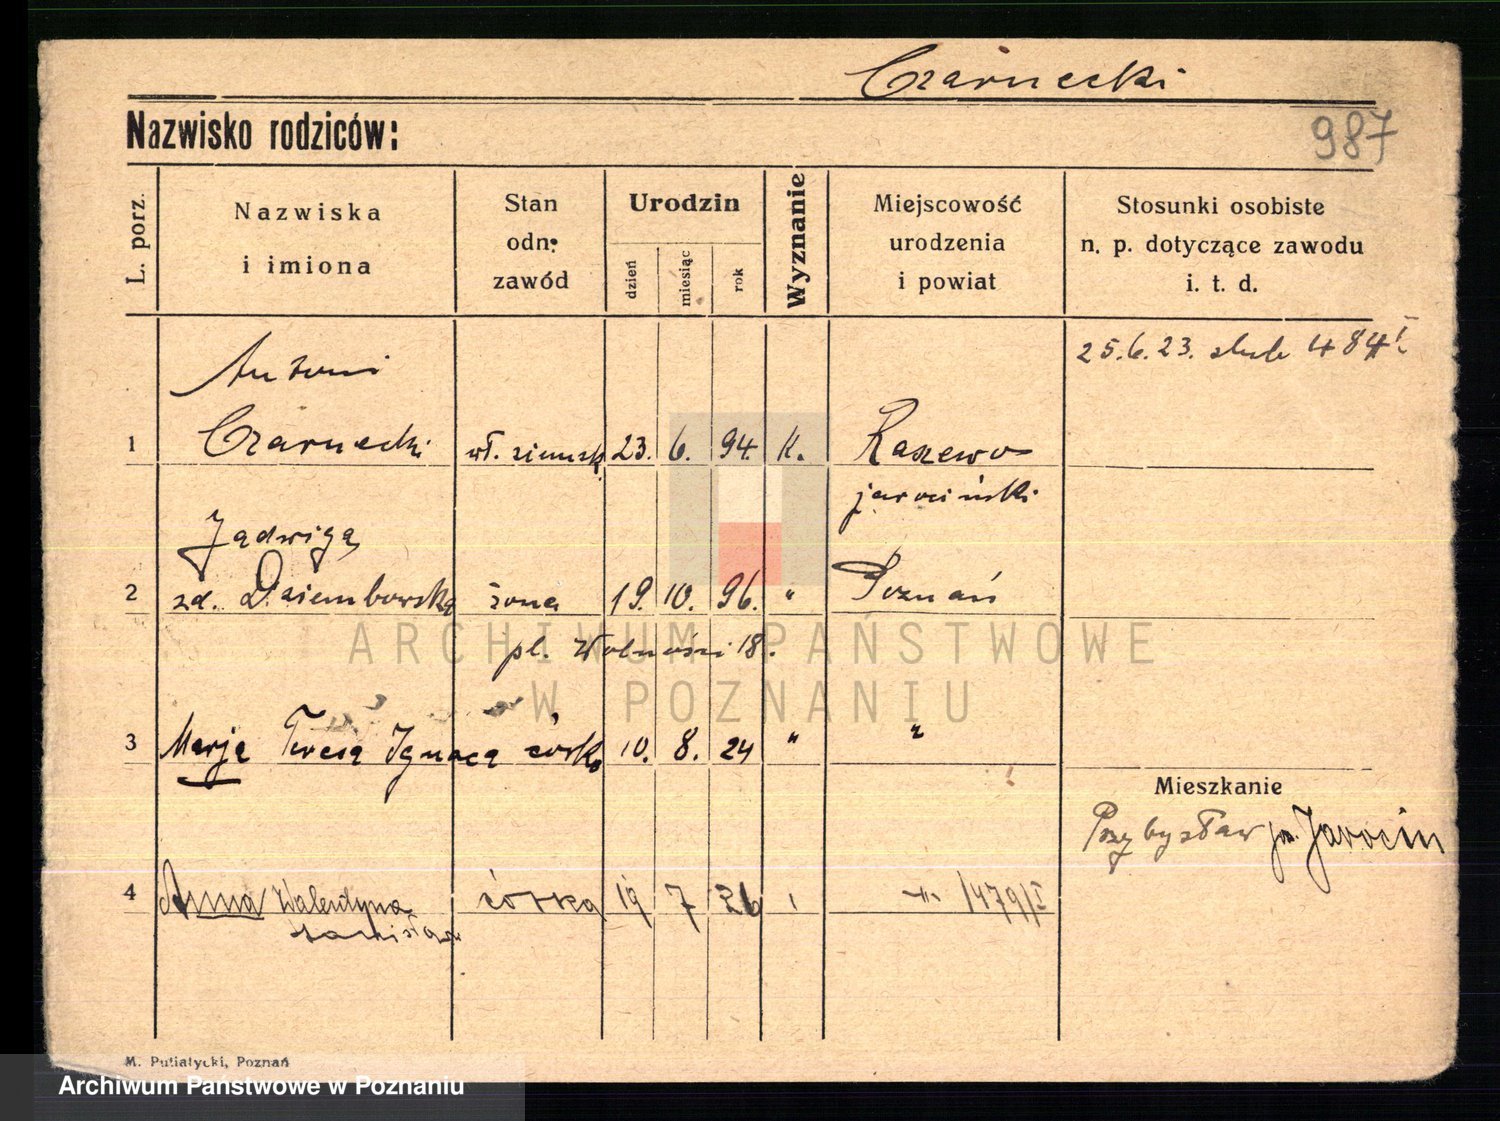 Czarnecki
Nazwisko rodziców:
987
L. porz.
Nazwiska
i imiona
Stan
odn.
zawód
Urodzin
dzień
miesiąc
rok
Wyznanie
Miejscowość
urodzenia
i powiat
Stosunki osobiste
n. p. dotyczące zawodu
i. t. d.
25.6.23. ślub 484 I
Antoni
1 Czarnecki wł. ziemsk. 23. 6. 94. k. Raszewo
jarociński
Jadwiga
2 zd. Dziembowska żona 19. 10. 96. " Poznań
pl. Wolności 18.
ARCHIWUM PAŃSTWOWE
W POZNANIU
3 Marja Teresa Ignaca córka 10. 8. 24 " "
Mieszkanie
Przybysław pow. Jarocin
4 Anna Walentyna córka 19 7 26 1479/I
M. Putiatycki, Poznań
Archiwum Państwowe w Poznaniu